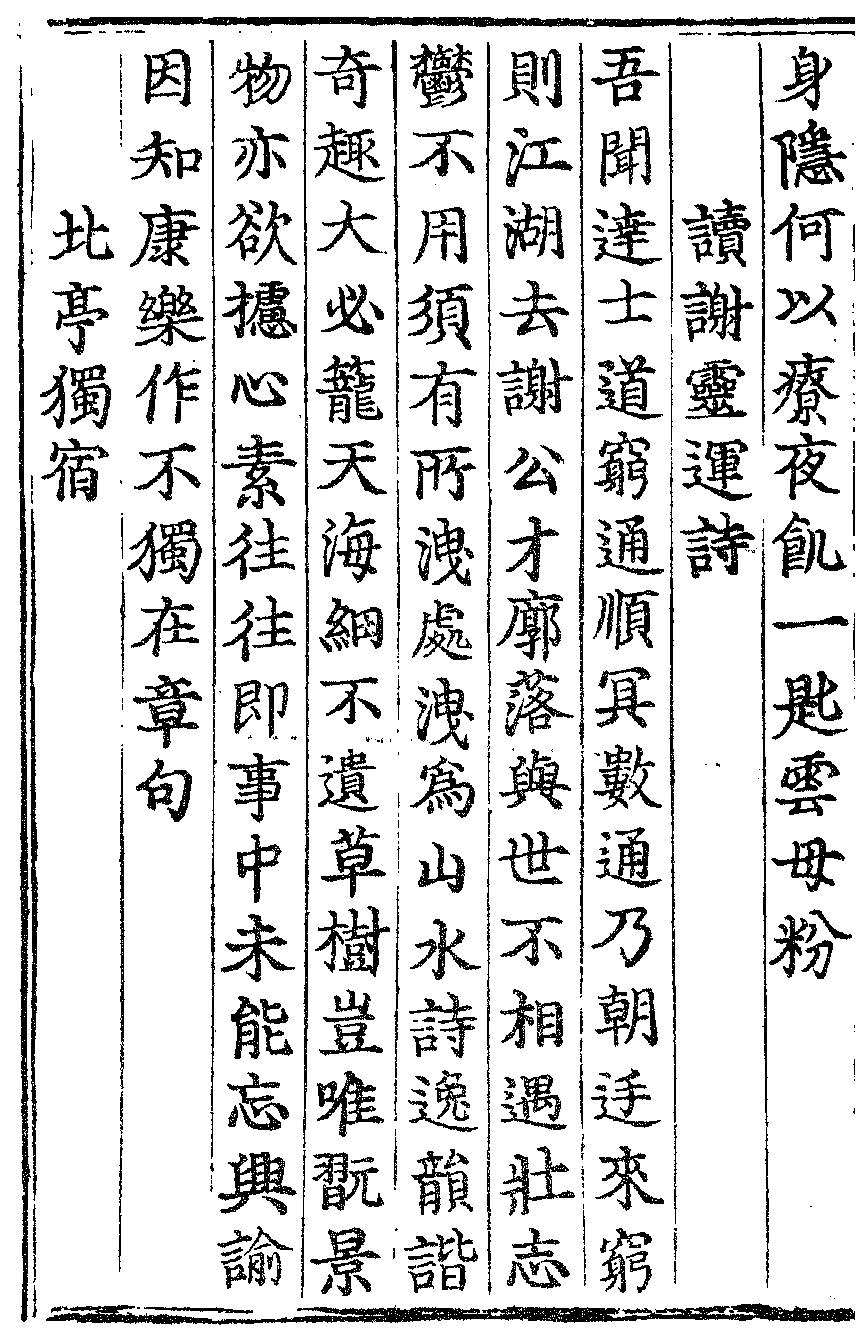 身隱何以療夜飢一匙雲母粉
讀謝靈運詩
吾聞達士道窮通順冥數通乃朝迋來窮
則江湖去謝公才廓落與世不相遇壯志
鬱不用須有所洩處洩爲山水詩逸韻諧
奇趣大必籠天海細不遺草樹豈唯翫景
物亦欲攄心素徃徃即事中未能忘興諭
因知康樂作不獨在章句
北亭獨宿